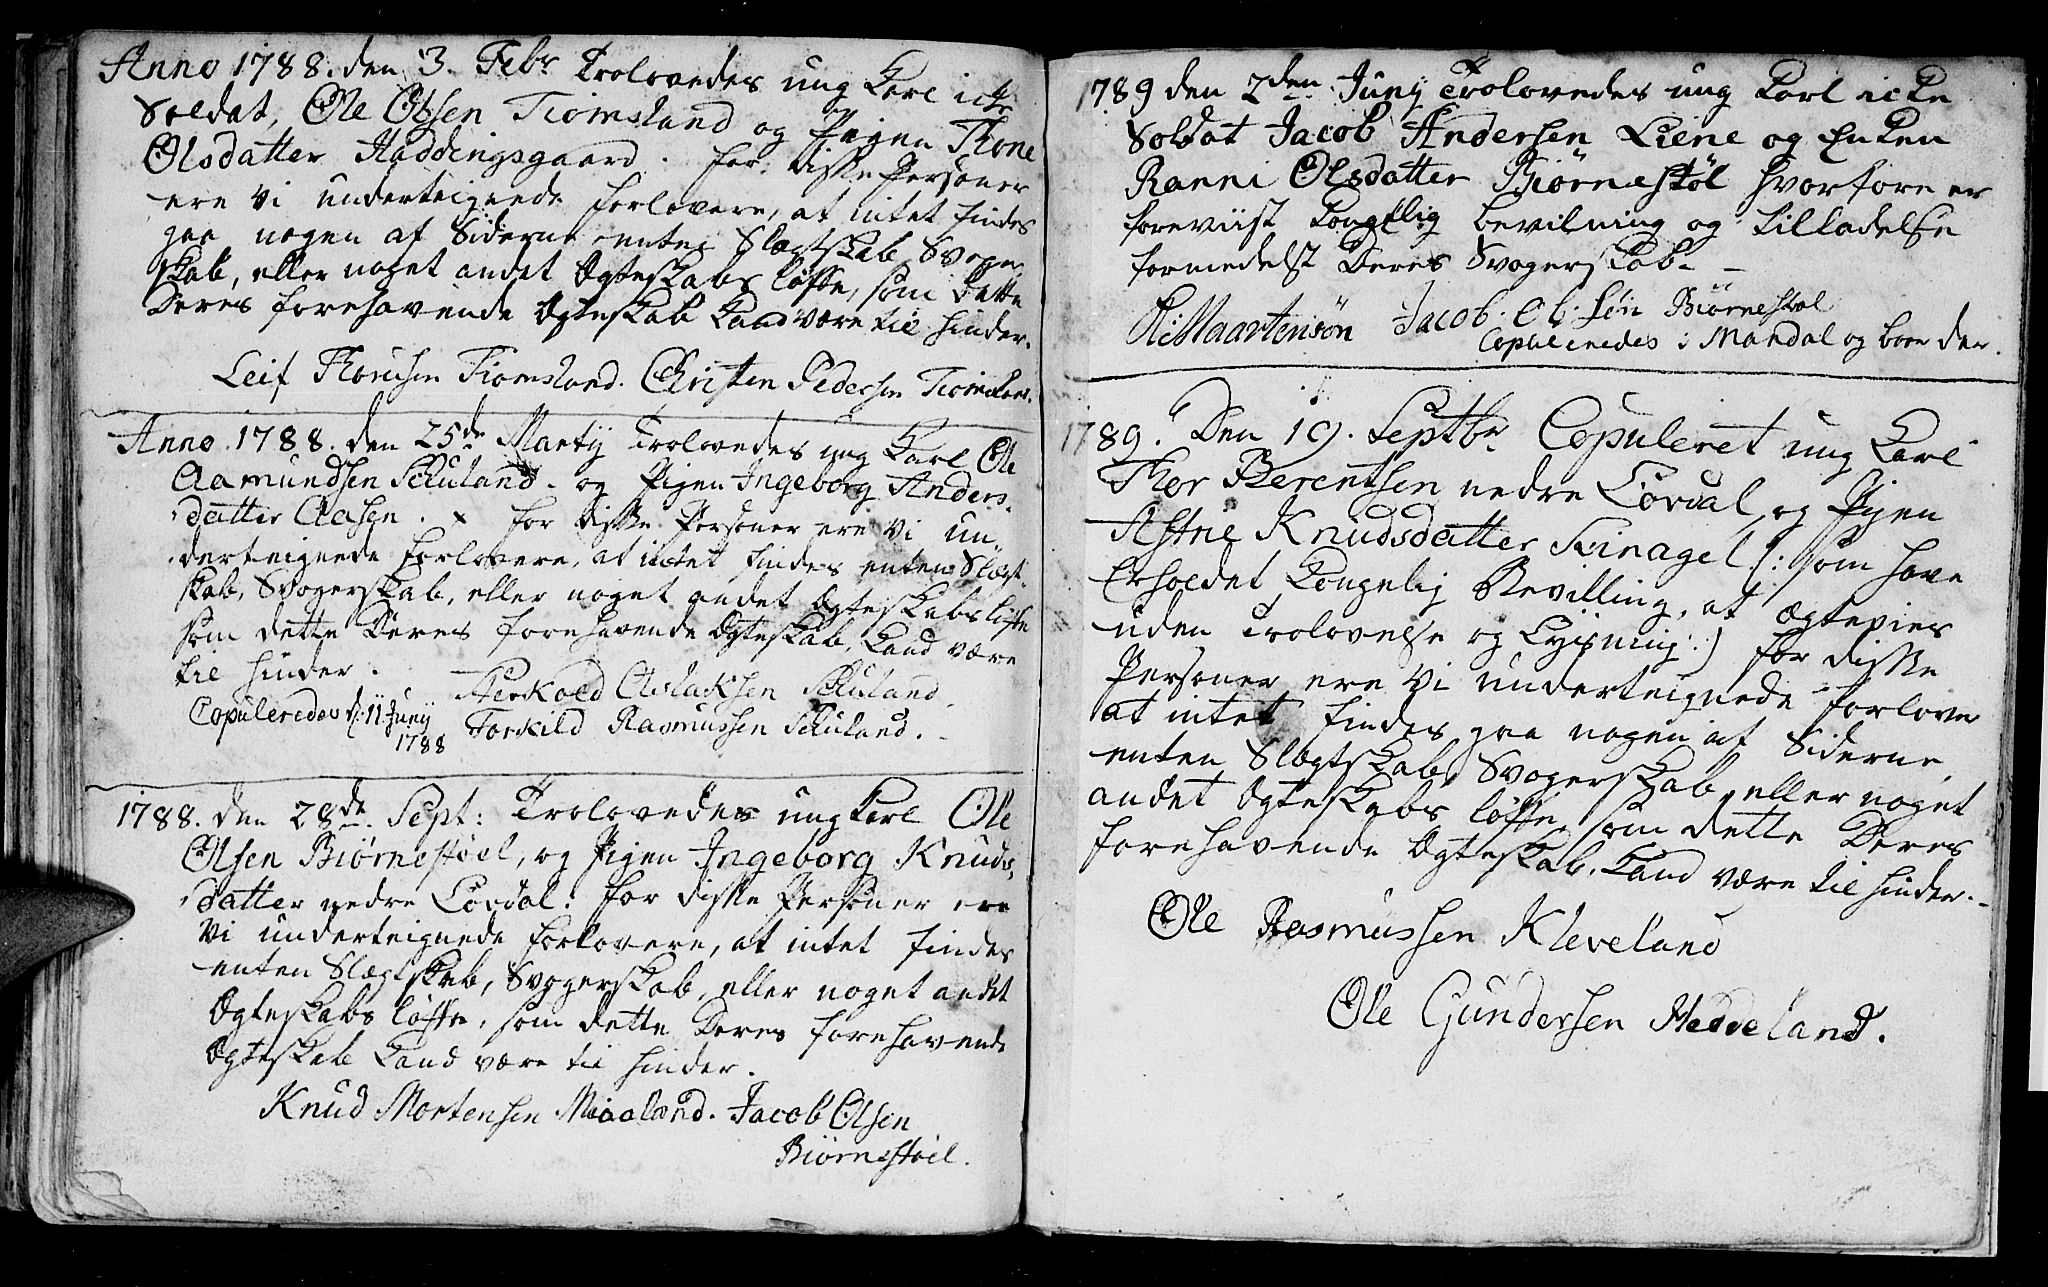 Anno 1788. den 3. Febr Trolovedes ung Karl icke
Soldat, Ole Olsen Tiomsland og Pigen Thone
Olsdatter Haddingsgaard. for diſse Personer
ere vi underteignede forlovere, at intet findes
paa nogen af Siderne enten Slægtskab, Svoger-
skab, eller noget andet Ægteskabs løfte, som dette
Deres forehavende Ægteskab kand være til hinder.
Leif Tiomsland. Christen Pedersen
Anno 1788. den 25de Martij Trolovedes ung Karl Ole
Aamundsen og Pigen Ingeborg Anders-
datter Aasen. × for diſse Personer ere vi un-
derteignede forlovere, at intet findes enten Slægt-
skab, Svogerskab, eller noget andet Ægteskabs løfte
som dette Deres forehavende Ægteskab, kand være
til hinder.
Aslaksen
Copuleredes d: 11 Junij Torkild Rasmussen
1788
1788. den 28de Sept: Trolovedes ung Karl Ole
Olsen Biørnestøel, og Pigen Ingeborg Knuds-
datter nedre Løvdal. for diſse Personer ere
vi underteignede forlovere, at intet findes
enten Slægtskab, Svogerskab, eller noget andet
Ægteskabs løfte, som dette Deres forehavende
Ægteskab kand være til hinder.
Knud Mortensen Miaaland. Jacob Olsen
Biørnestøel.
1789 den 2den Juny Trolovedes ung Karl icke
Soldat Jacob Andersen Liene og Enken
Ranni Olsdatter Biørnestøl hvorfore er
foreviist Kongelig bevilning og tilladelse
formedelst Deres Svogerskab. –
Maartensøn Jacob. Ol. søn Biørnestøl
Copuleredes i Mandal og boer der.
1789. Den 19. Septbr Copuleret ung Karl
Thor Berentsen nedre Løvdal, og Pigen
Astne Knudsdatter (: som have
Erholdet Kongelig Bevilling, at Ægtevies
uden Trolovelse og Lysning :) for diſse
Personer ere vi underteignede forlover
at intet findes paa nogen af Siderne,
enten Slægtskab, Svogerskab, eller noget
andet Ægteskabs løfte, som dette Deres
forehavende Ægteskab, kand være til hinder. –
Ole Rasmussen Kleveland
Ole Gundersen Heddeland.